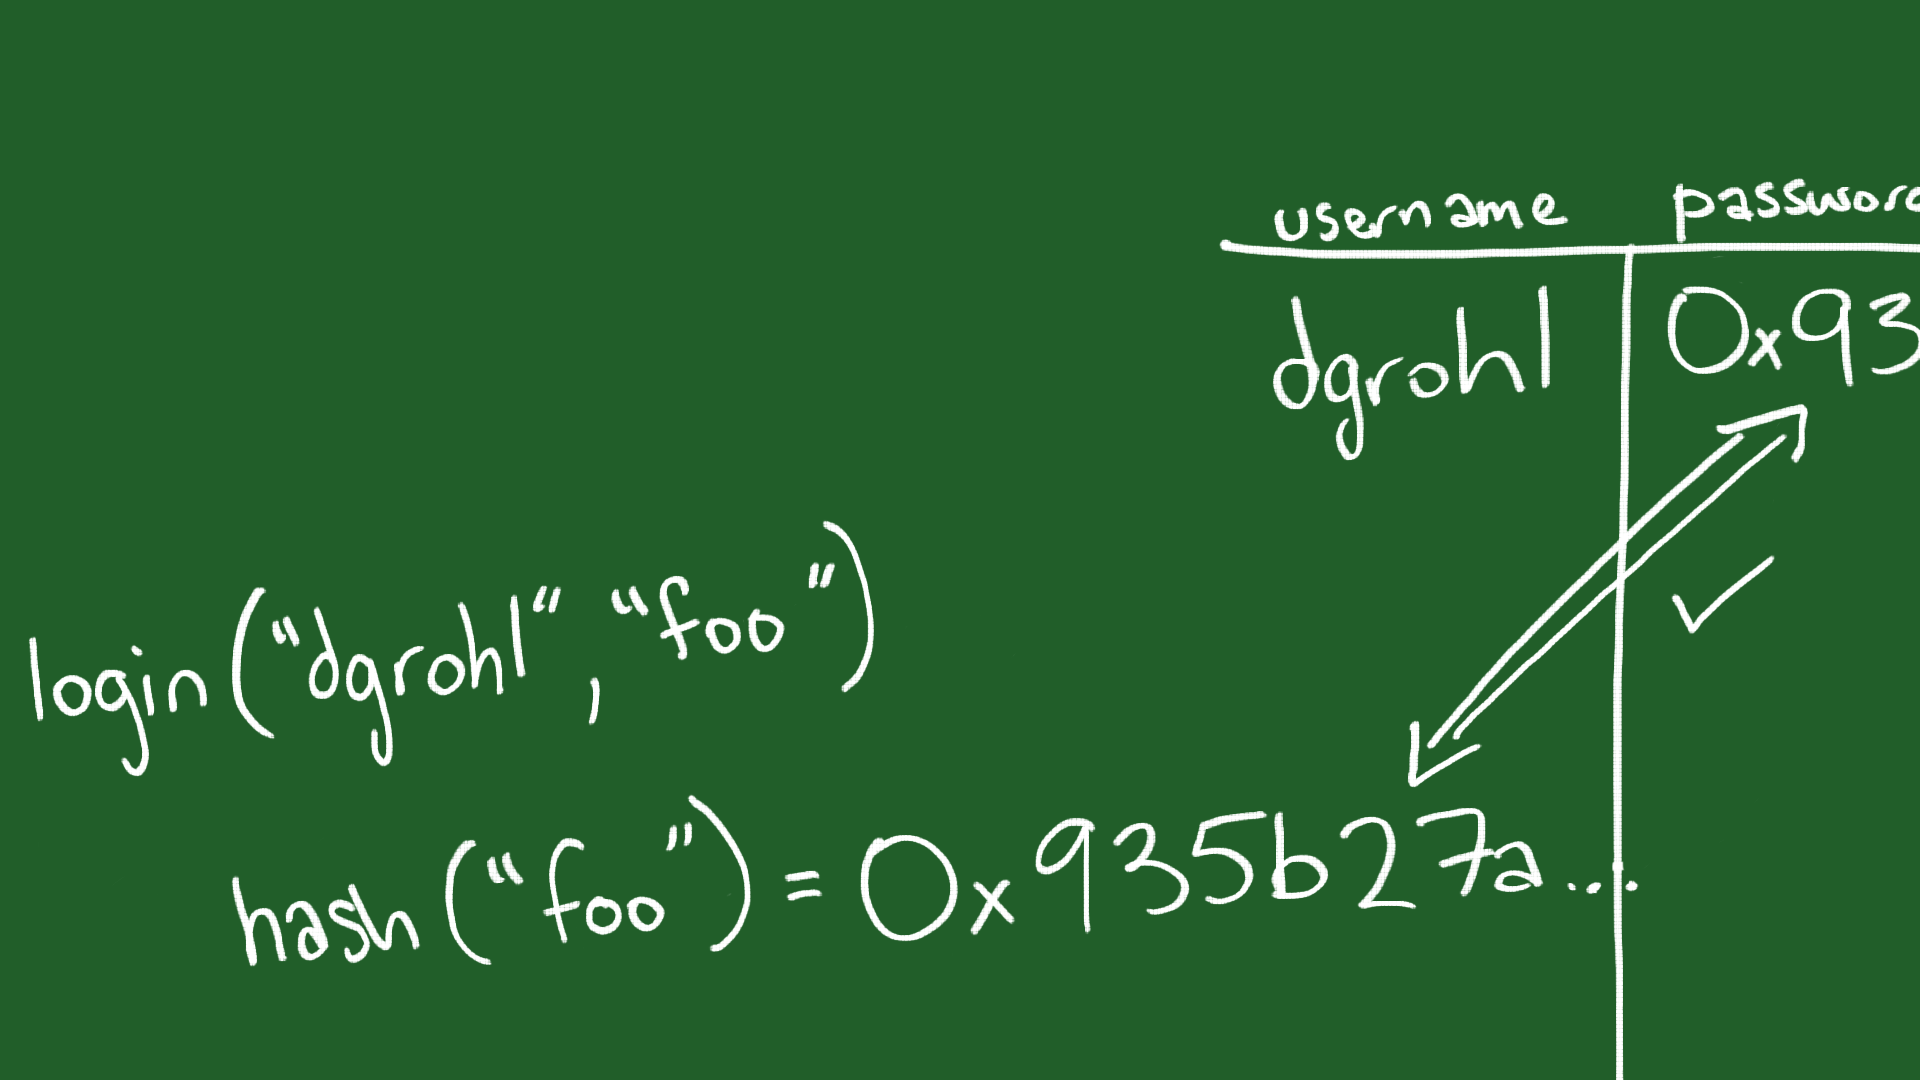 username passwor
dgrohl 0x93
login("dgrohl", "foo")
hash("foo") = 0x935b27a...